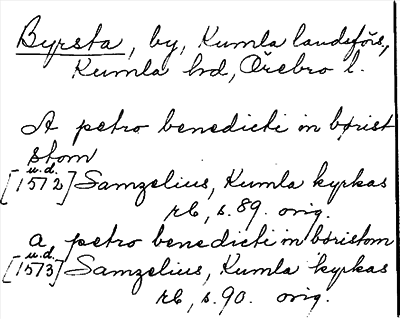 Byrsta, by, Kumla landsförs.,
Kumla hd, Örebro l.
A petro benedicti in børist
stom
u.d.
[1572] Samzelius, Kumla kyrkas
rb, s. 89. orig.
a petro benedicti in boristom
u.d.
[1573] Samzelius, Kumla kyrkas
rb, s. 90. orig.